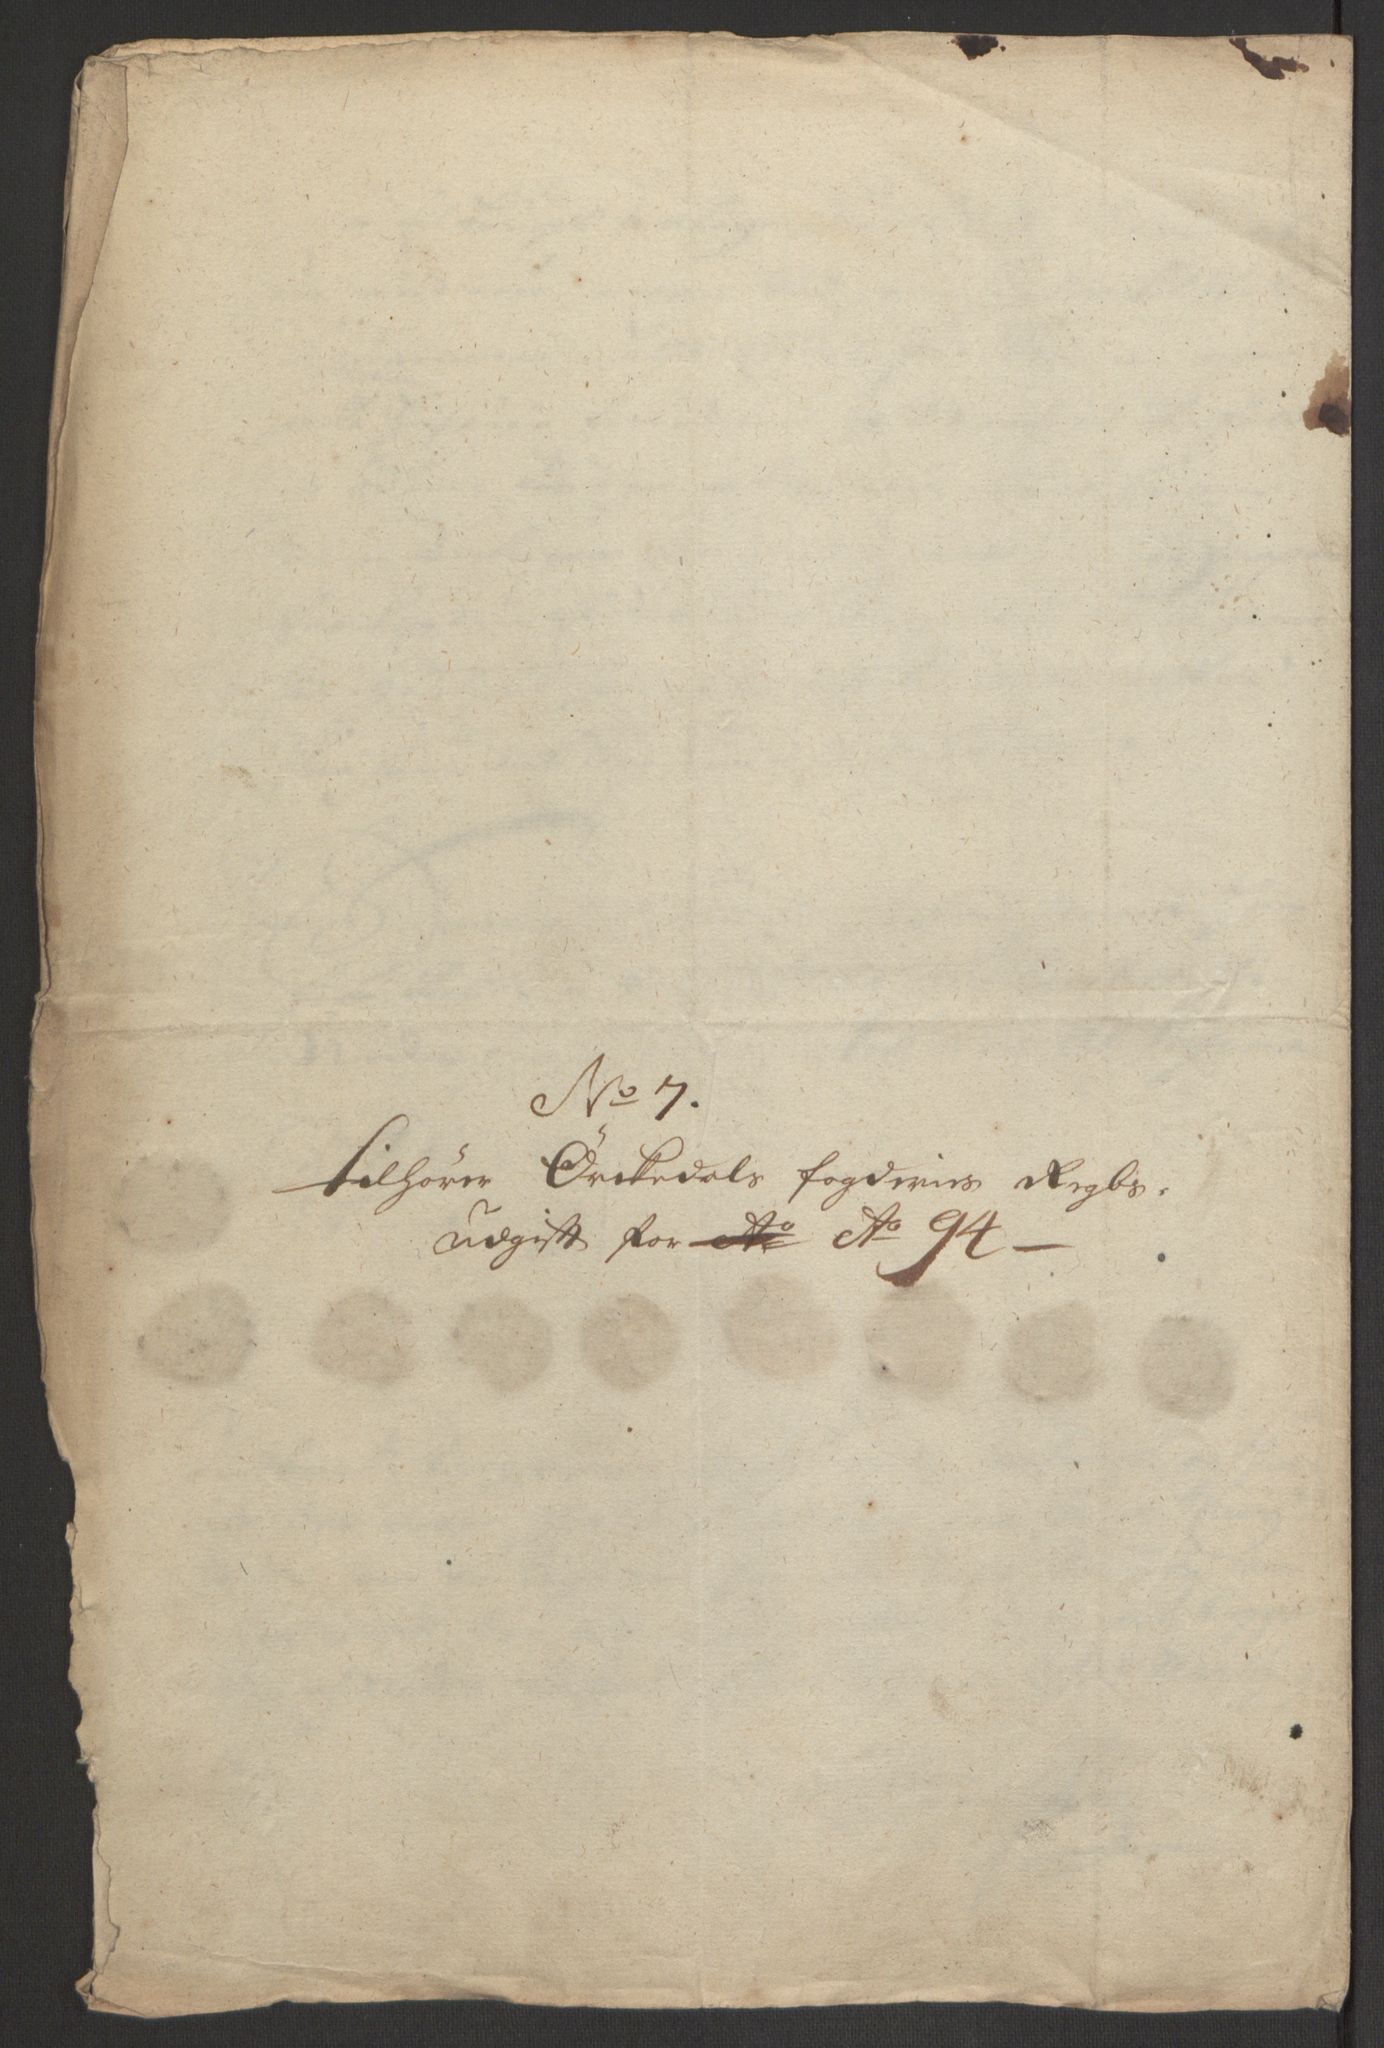 No 7.
Tilhörer Örckedals fogderies Regbs.
udgift for A̶o̶ Ao 94 —